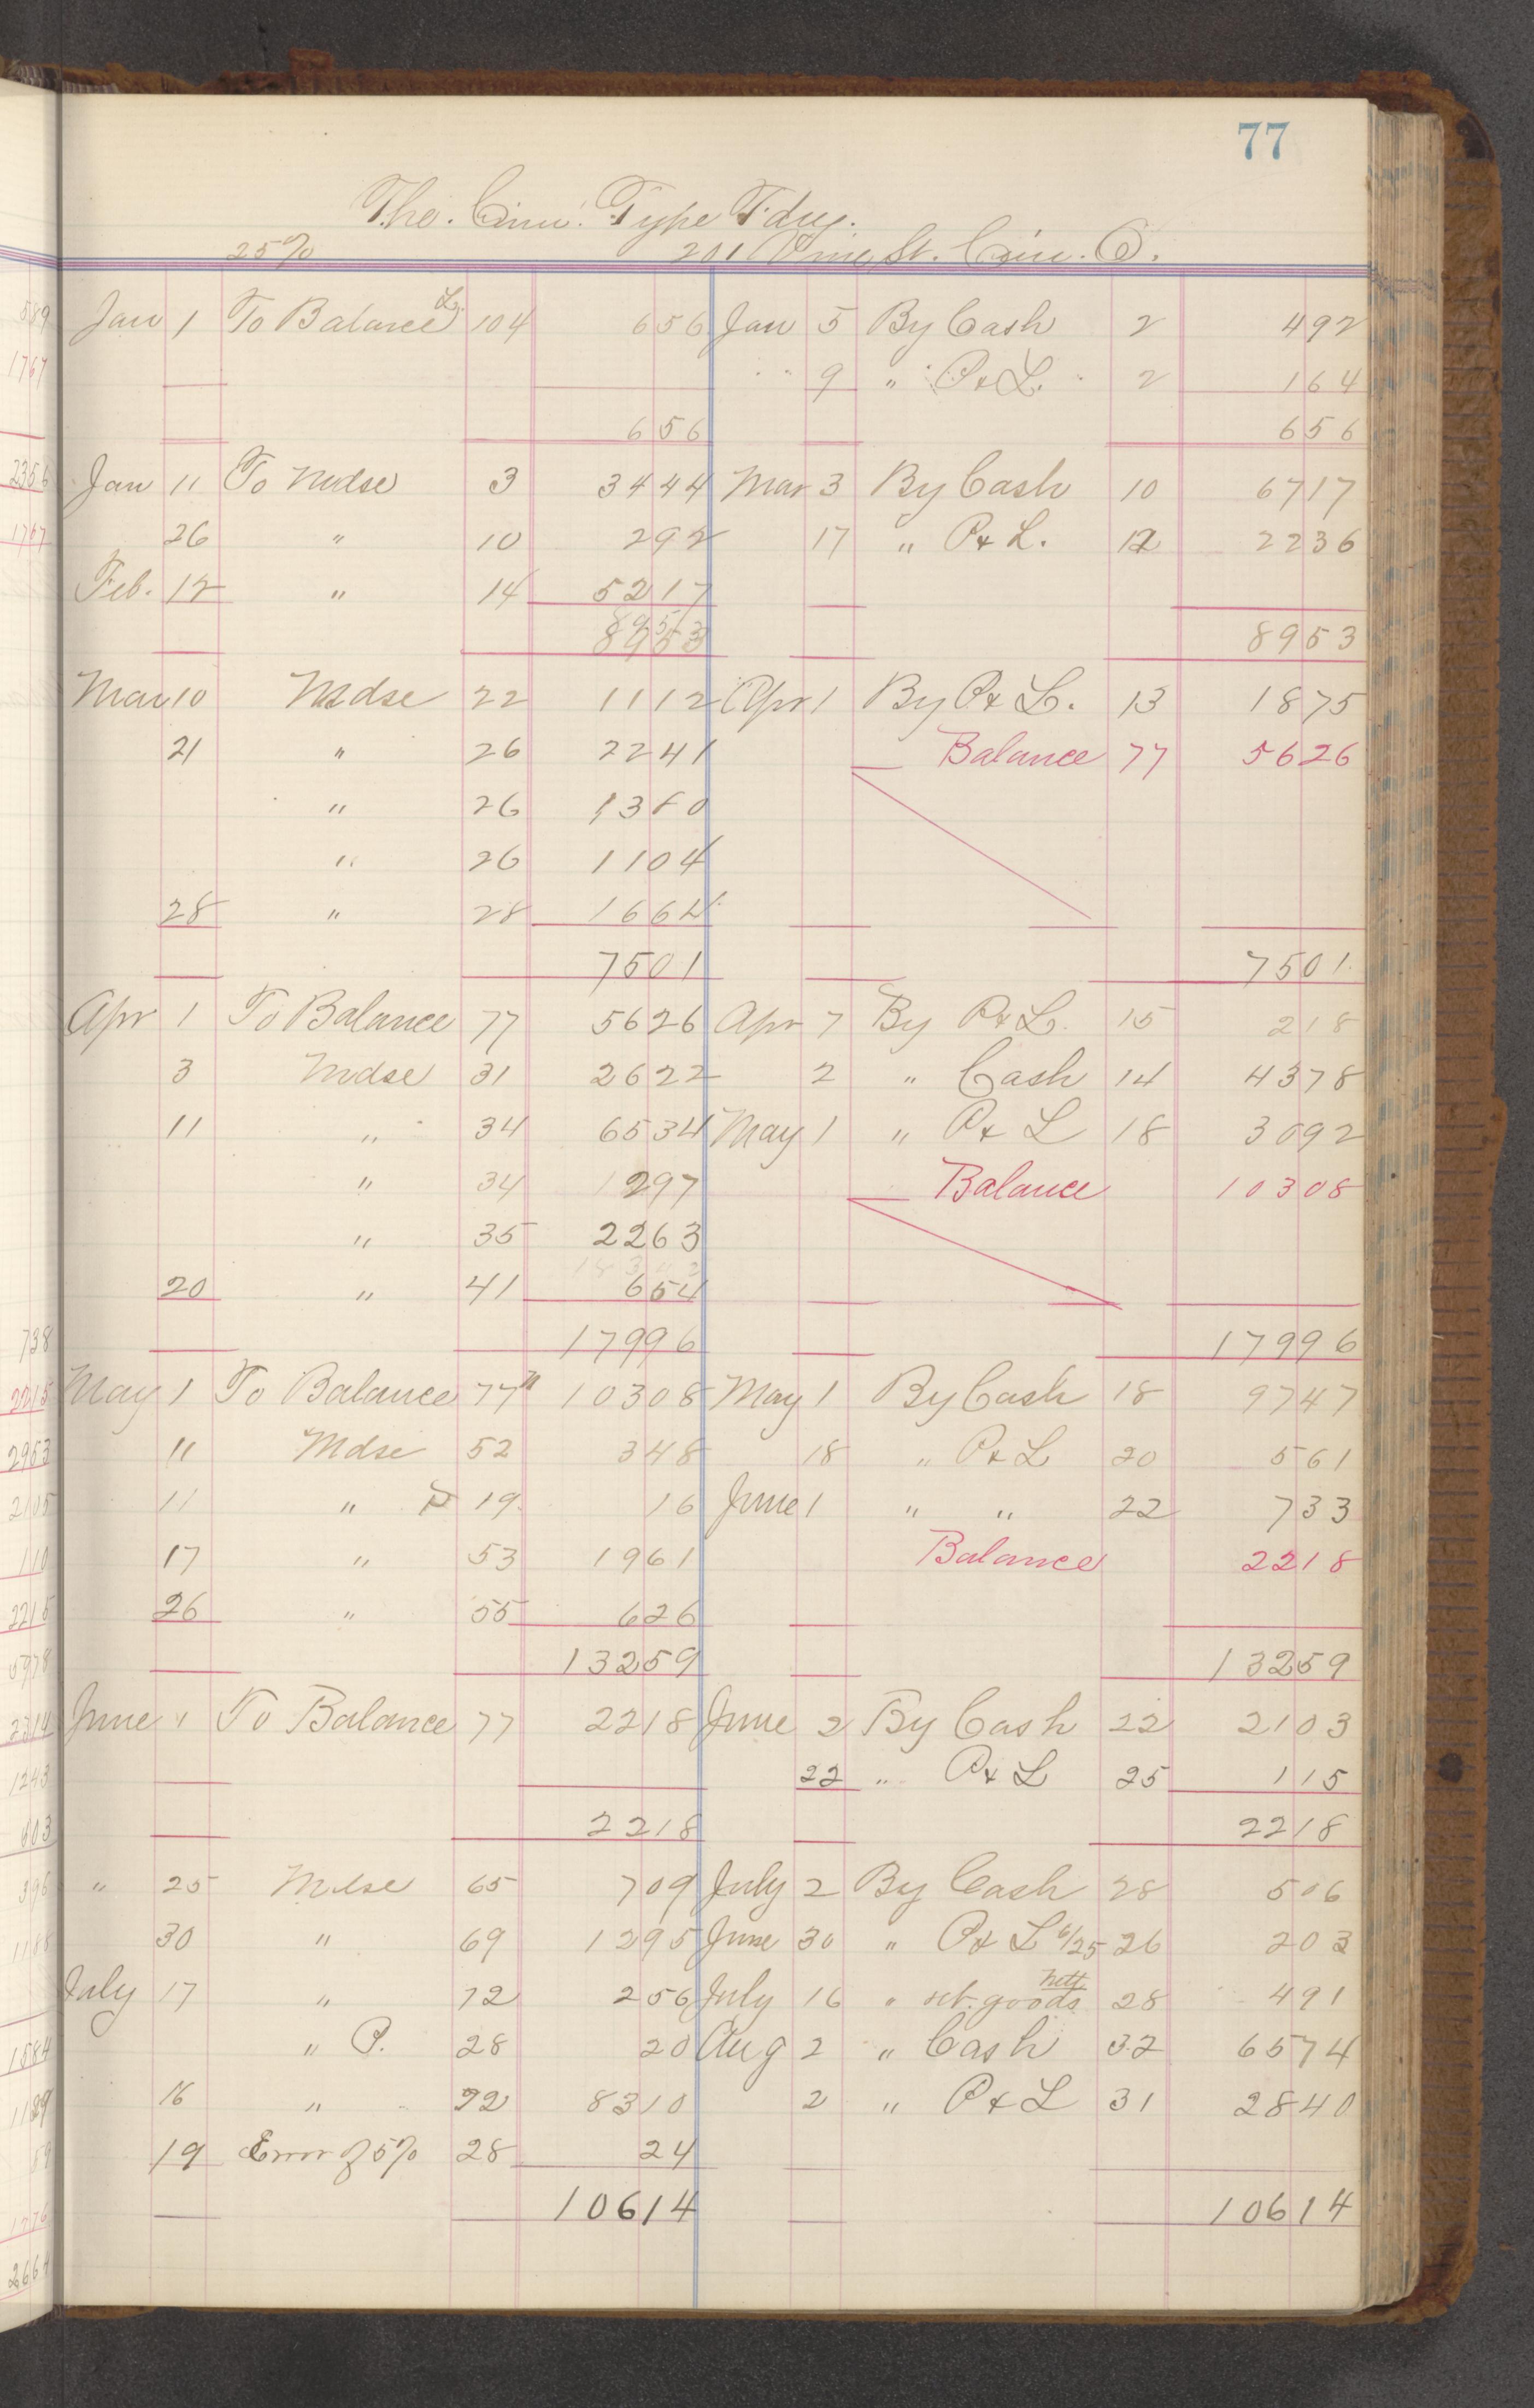 77
The. Cinn. Type Fdry.
25% 201 Vine St. Cin. O.
Jan 1 To Balance L. 104 656 Jan 5 By Cash 2 492
" 9 " P & L. 2 164
656 656
Jan 11 To Mdse 3 3444 Mar 3 By Cash 10 6717
26 " 10 292 17 " P & L. 12 2236
Feb. 12 " 14 5217
8953
8953 8953
Mar 10 Mdse 22 1112 Apr 1 By P & L. 13 1875
21 " 26 2241 Balance 77 5626
" 26 1380
" 26 1104
28 " 28 1664
7501 7501
Apr 1 To Balance 77 5626 Apr 7 By P & L. 15 218
3 Mdse 31 2622 2 " Cash 14 4378
11 " 34 6534 May 1 " P & L 18 3092
" 34 297 Balance 10308
" 35 2263
20 " 41 654
17996 17996
May 1 To Balance 77 10308 May 1 By Cash 18 9747
11 Mdse 52 348 18 " P & L 20 561
11 " P 19 16 June 1 " " 22 733
17 " 53 1961 Balance 2218
26 " 55 626
13259 13259
June 1 To Balance 77 2218 June 2 By Cash 22 2103
22 " P & L 25 115
2218 2218
" 25 Mdse 65 709 July 2 By Cash 28 506
30 " 69 1295 June 30 " P & L 6/25 26 203
July 17 " 72 256 July 16 " ret. goods nett 28 491
" P. 28 20 Aug 2 " Cash 32 6574
16 " 72 8310 2 " P & L 31 2840
19 Error of 5% 28 24
10614 10614